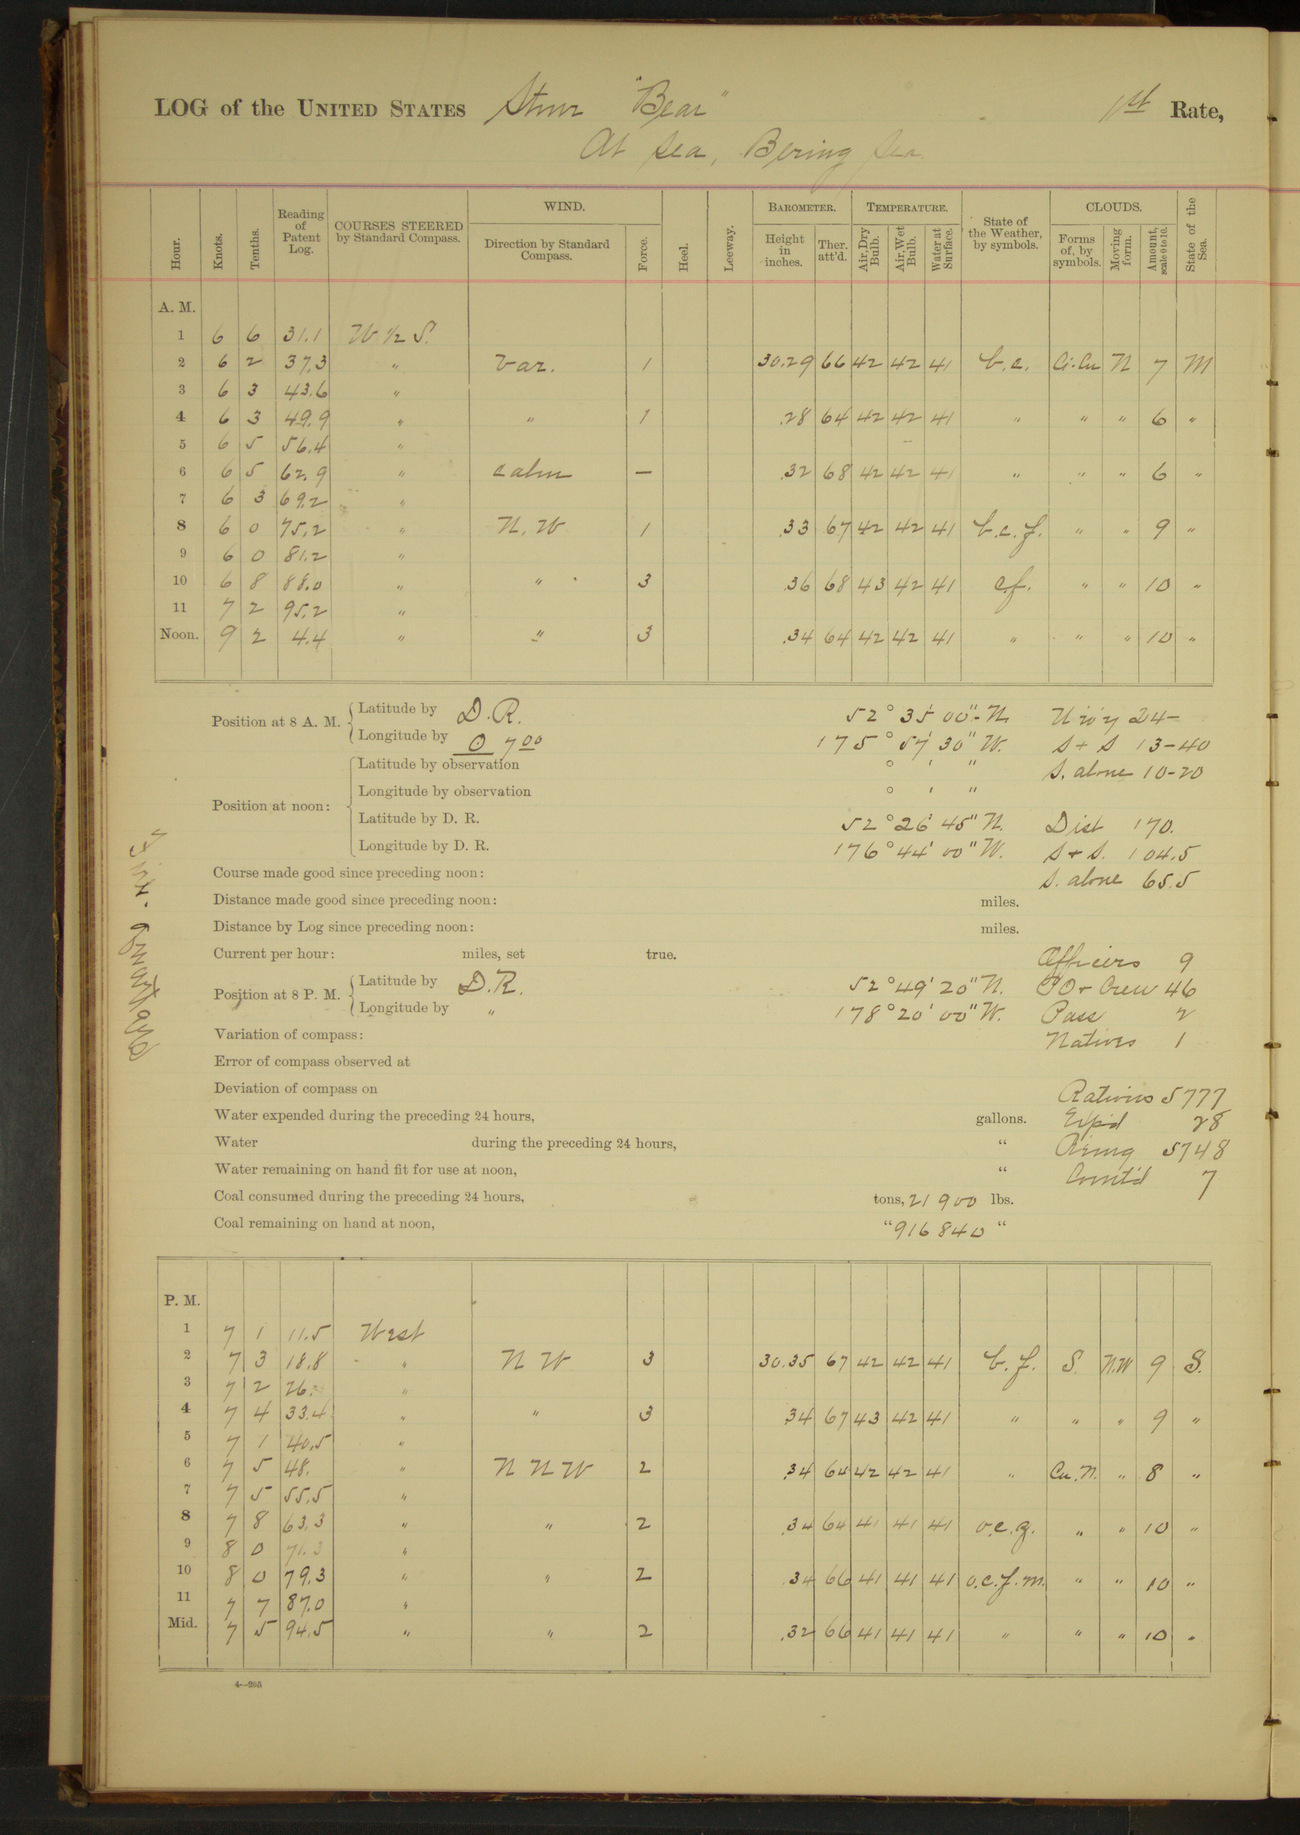 LOG of the UNITED STATES Stmr "Bear" 1st Rate,
At Sea, Bering Sea
Hour. Knots. Tenths. Reading of Patent Log. COURSES STEERED by Standard Compass. WIND. Direction by Standard Compass. Force. Heel. Leeway. BAROMETER. Height in inches. Ther. att'd. TEMPERATURE. Air, Dry Bulb. Air, Wet Bulb. Water at Surface. State of the Weather, by symbols. CLOUDS. Forms of, by symbols. Moving form. Amount, scale 0 to 10. State of the Sea.
A. M.
1 6 6 31.1 W ½ S.
2 6 2 37.3 " Var. 1 30.29 66 42 42 41 b.c. Ci.Cu N 7 M
3 6 3 43.6 "
4 6 3 49.9 " " 1 .28 64 42 42 41 " " " 6 "
5 6 5 56.4 "
6 6 5 62.9 " calm — .32 68 42 42 41 " " " 6 "
7 6 3 69.2 "
8 6 0 75.2 " N.W 1 .33 67 42 42 41 b.c.f. " " 9 "
9 6 0 81.2 "
10 6 8 88.0 " " 3 .36 68 43 42 41 c.f. " " 10 "
11 7 2 95.2 "
Noon. 9 2 4.4 " " 3 .34 64 42 42 41 " " " 10 "
Position at 8 A. M. Latitude by D.R. 52° 35' 00" N. 24-
Longitude by 7 00 175° 57' 30" W. S + S 13-40
Position at noon: Latitude by observation ° ' " S. alone 10-20
Longitude by observation ° ' "
Latitude by D. R. 52° 26' 45" N. Dist 170.
Longitude by D. R. 176° 44' 00" W. S + S. 104.5
Course made good since preceding noon: S. alone 65.5
Distance made good since preceding noon: miles.
Distance by Log since preceding noon: miles.
Current per hour: miles, set true. Officers 9
Position at 8 P. M. Latitude by D.R. 52° 49' 20" N. PO + Crew 46
Longitude by " 178° 20' 00" W. Pass 2
Variation of compass: Natives 1
Error of compass observed at
Deviation of compass on Rations 5777
Water expended during the preceding 24 hours, gallons. Exp'd 28
Water during the preceding 24 hours, " 5748
Water remaining on hand fit for use at noon, " Comt'd 7
Coal consumed during the preceding 24 hours, tons, 21 900 lbs.
Coal remaining on hand at noon, " 916 840 "
P. M.
1 7 1 11.5 West
2 7 3 18.8 " N W 3 30.35 67 42 42 41 b.f. S. N.W 9 S.
3 7 2 26. "
4 7 4 33.4 " " 3 .34 67 43 42 41 " " " 9 "
5 7 1 40.5 "
6 7 5 48. " N N W 2 .34 64 42 42 41 " Cu.N. " 8 "
7 7 5 55.5 "
8 7 8 63.3 " " 2 .34 64 41 41 41 o.c.g. " " 10 "
9 8 0 71.3 "
10 8 0 79.3 " " 2 .34 66 41 41 41 o.c.f.m. " " 10 "
11 7 7 87.0 "
Mid. 7 5 94.5 " " 2 .32 66 41 41 41 " " " 10 "
4—205